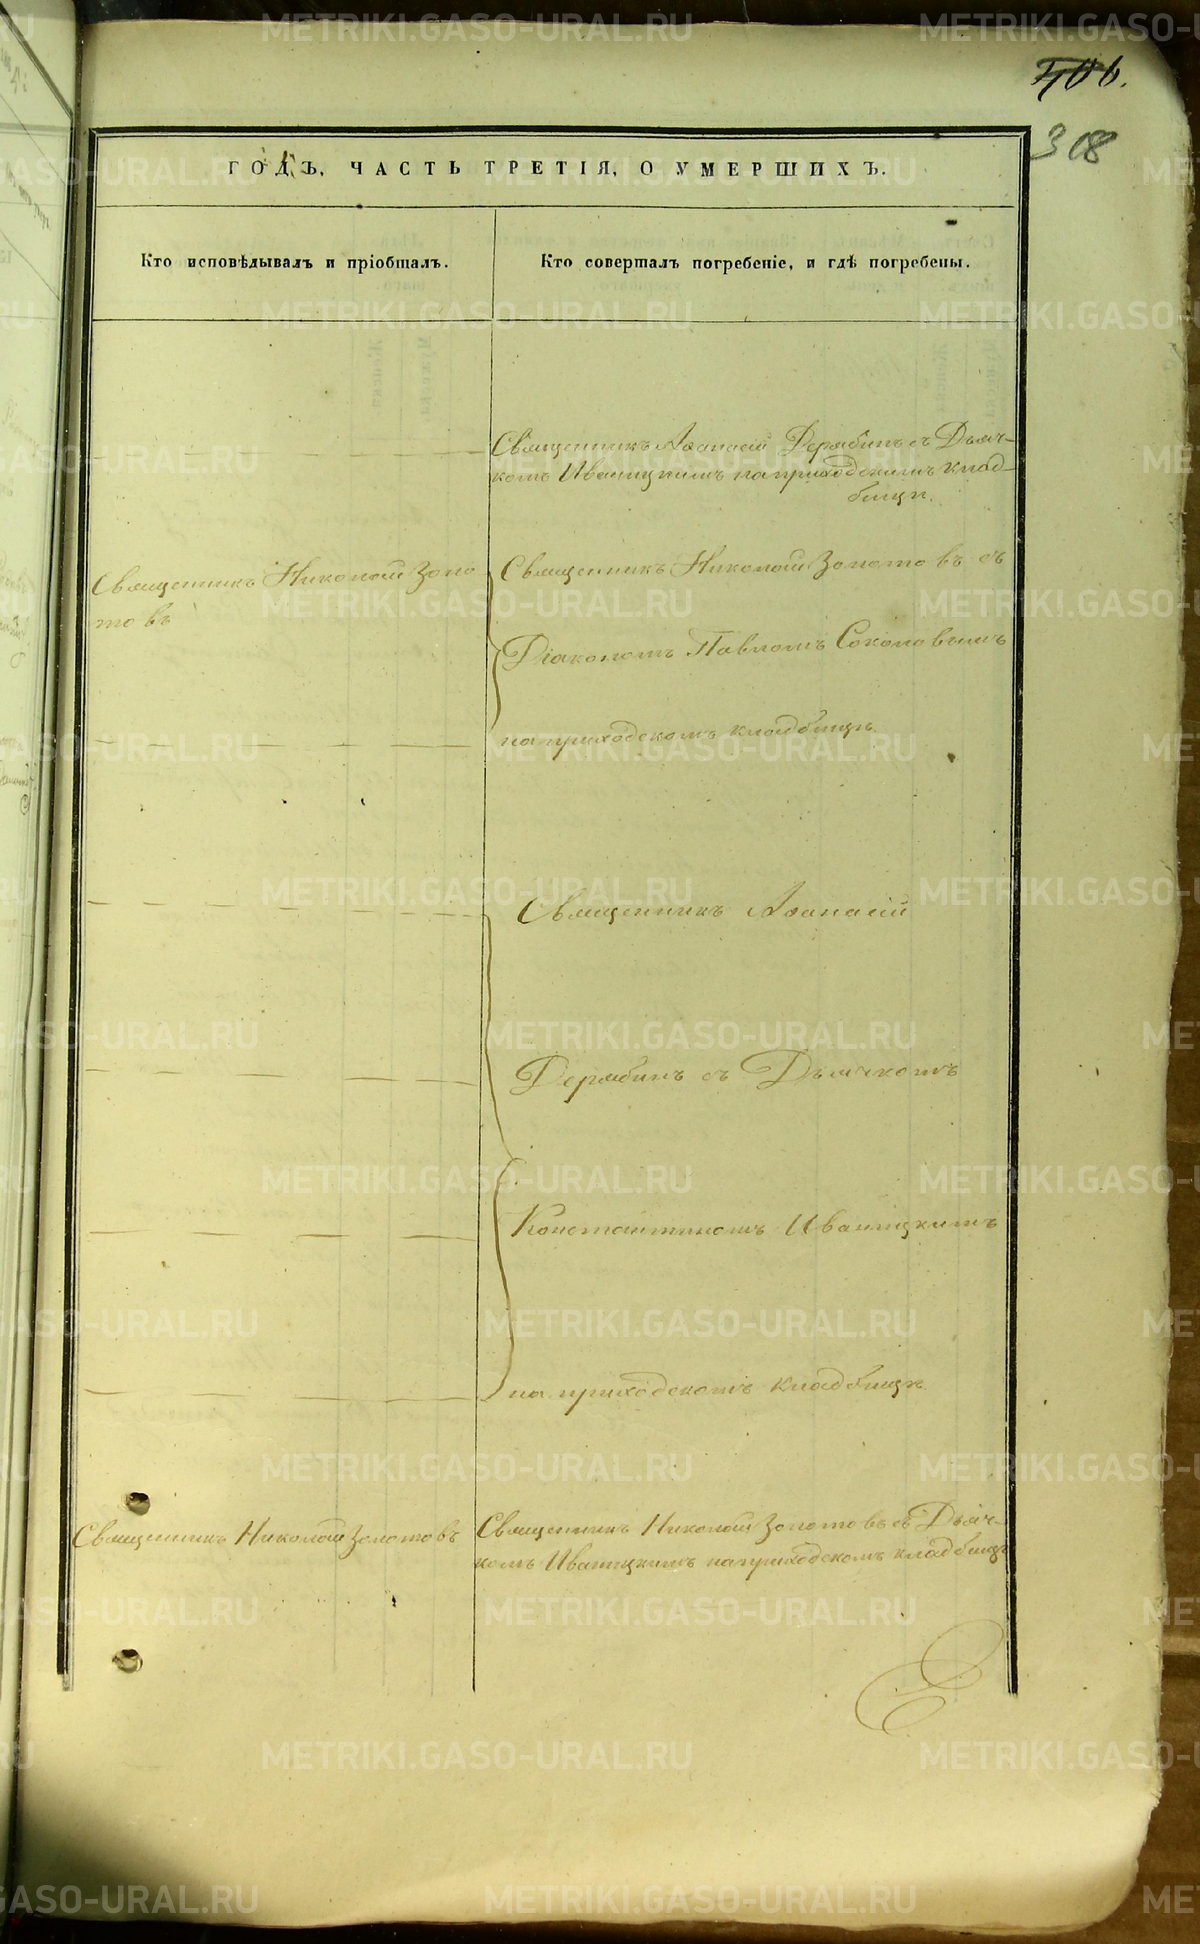 406.
308
ГОДЪ, ЧАСТЬ ТРЕТІЯ, О УМЕРШИХЪ.
Кто исповѣдывалъ и пріобщалъ.
Кто совершалъ погребеніе, и гдѣ погребены.
Священникъ Аѳанасій Дерябинъ съ Дьяч-
комъ Иваницкимъ на приходскомъ клад-
бищѣ.
Священникъ Николай Золо
товъ
Священникъ Николай Золотовъ съ
Діакономъ Павломъ Соколовымъ
на приходскомъ кладбищѣ.
Священникъ Аѳанасій
Дерябинъ съ Дьячкомъ
Константиномъ Иваницкимъ
на приходскомъ кладбищѣ.
Священникъ Николай Золотовъ
Священникъ Николай Золотовъ съ Дьяч-
комъ Иваницкимъ на приходскомъ кладбищѣ
METRIKI.GASO-URAL.RU